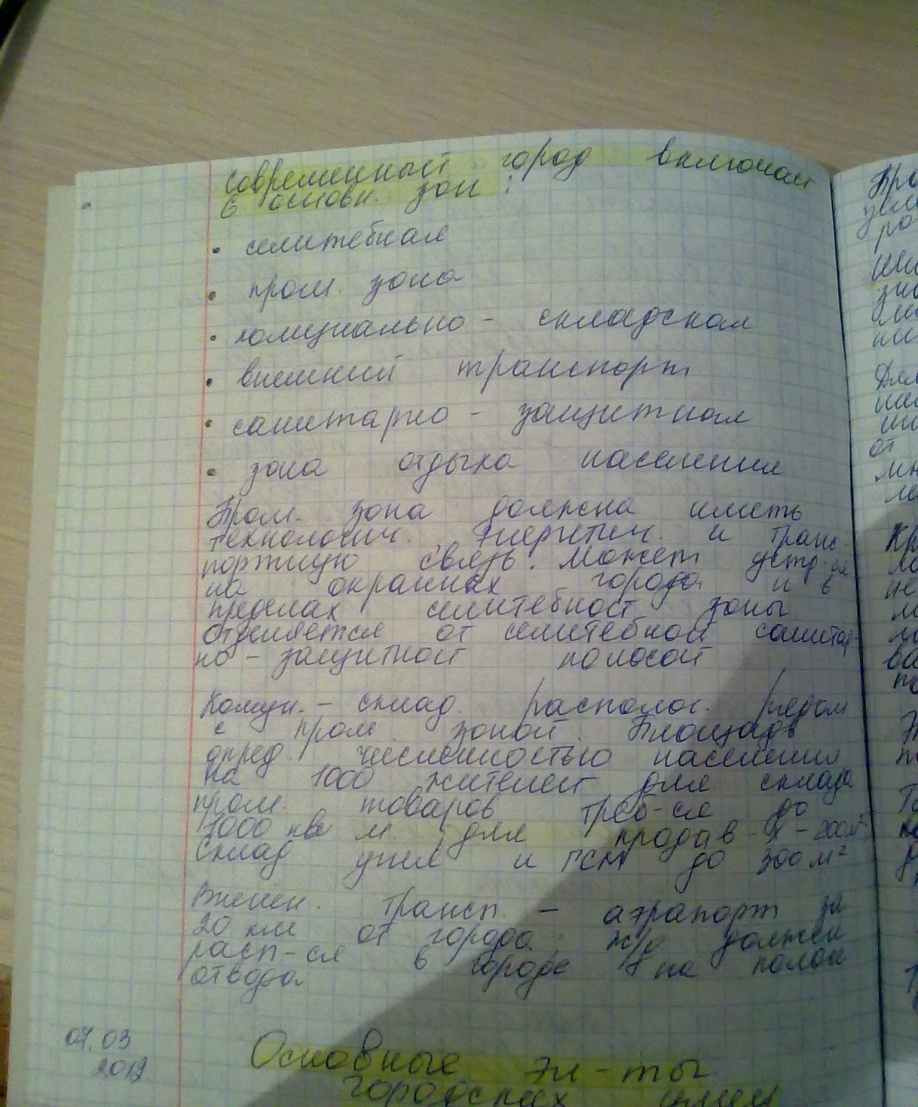 Современный город включает
6 основн. зон:
• селитебная
• пром. зона
• комунально - складская
• внешний транспорт
• санитарно - защитная
• зона отдыха населения
Пром. зона должна иметь
технологич. энергетич. и транс-
портную связь. Может устр-ся
на окраинах города и в
пределах селитебност зоны
отделяется от селитебной санитар-
но - защитной полосой
Комун. - склад. располог. рядом
с пром. зоной. Площадь
опред численностью населения
на 1000 жителей для склада
пром. товаров треб-ся до
1000 кв м. для продов - 200м²
склад угля и ГСМ до 300м²
Внешн. трансп. - аэрапорт за
20 км от города, ж/д должен
расп-ся в городе на полосе
отвода.
07.03
2019
Основные эл-ты
городских улиц
Кр
Эт